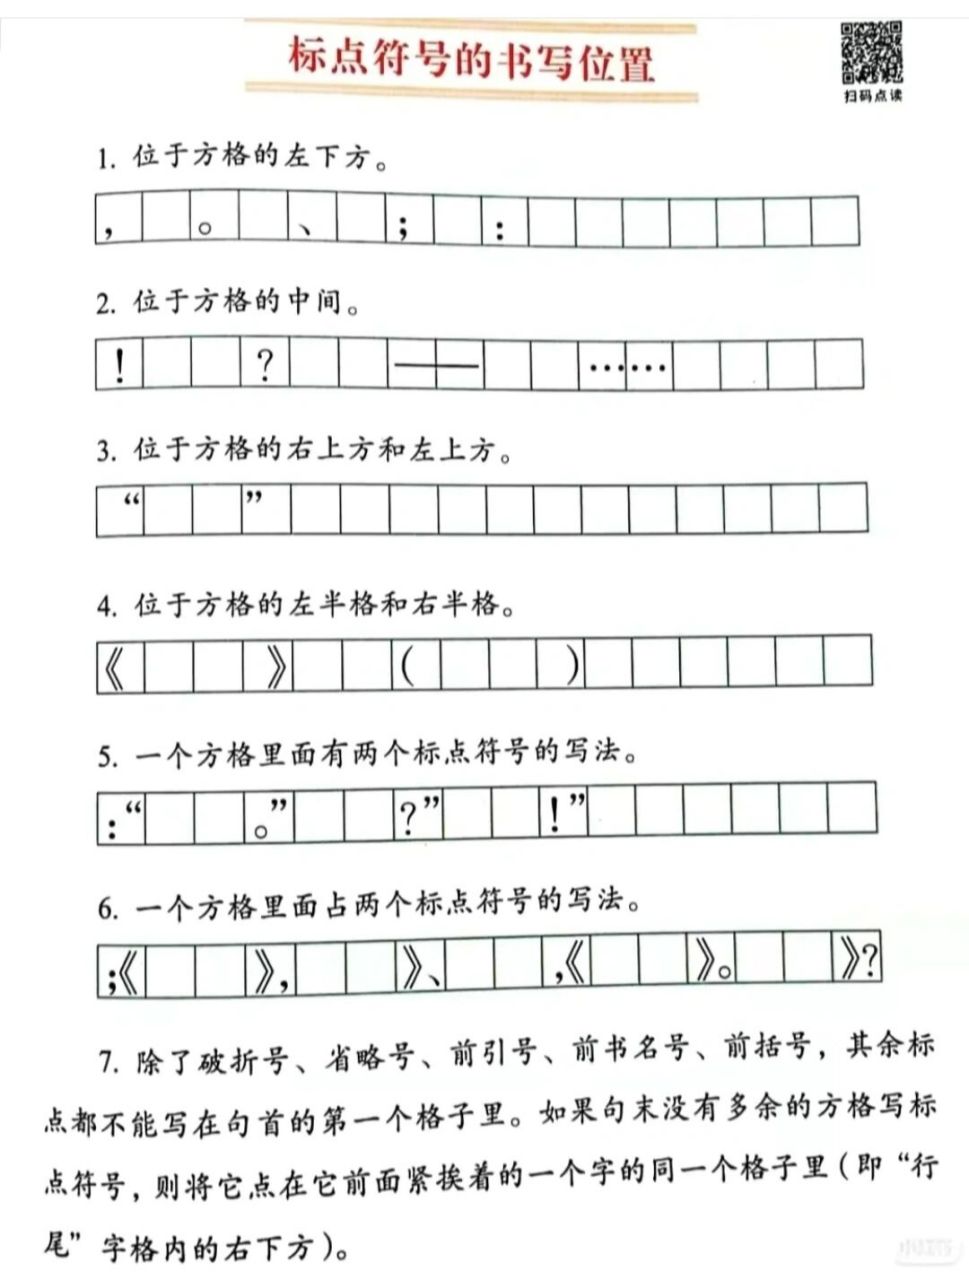 标点符号的书写位置
扫码点读
1. 位于方格的左下方。
， 。 、 ； ：
2. 位于方格的中间。
！ ？ —— ……
3. 位于方格的右上方和左上方。
“ ”
4. 位于方格的左半格和右半格。
《 》 （ ）
5. 一个方格里面有两个标点符号的写法。
：“ 。” ？” ！”
6. 一个方格里面占两个标点符号的写法。
；《 》， 》、 ，《 》。 》？
7. 除了破折号、省略号、前引号、前书名号、前括号，其余标
点都不能写在句首的第一个格子里。如果句末没有多余的方格写标
点符号，则将它点在它前面紧挨着的一个字的同一个格子里（即“行
尾”字格内的右下方）。
小红书